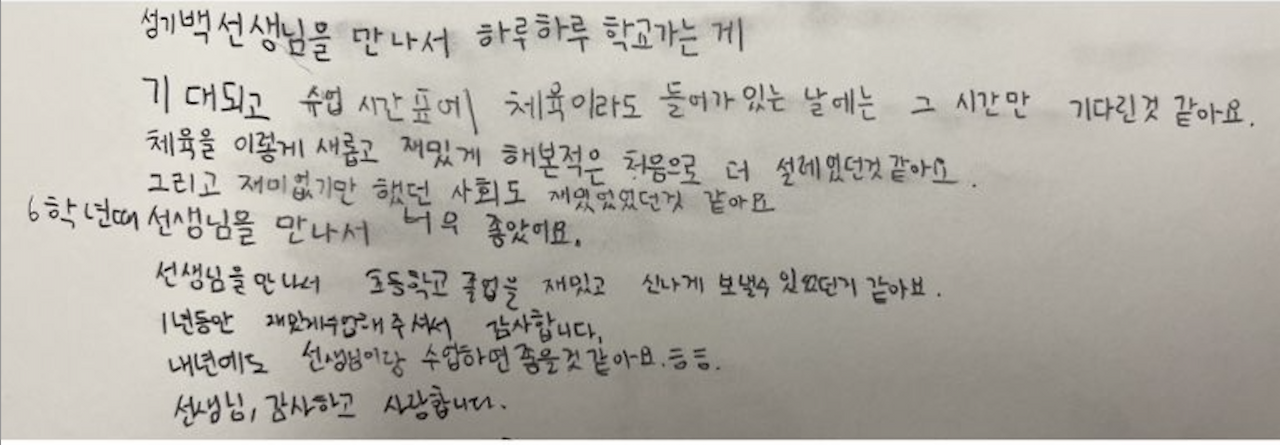 성기백선생님을 만나서 하루하루 학교가는 게
기대되고 수업 시간표에 체육이라도 들어가있는 날에는 그 시간만 기다린것 같아요.
체육을 이렇게 새롭고 재밌게 해본적은 처음으로 더 설레였던것같아요.
그리고 재미없기만 했던 사회도 재밌었었던것 같아요
6학년때 선생님을 만나서 너무 좋았어요.
선생님을만나서 초등학교 졸업을 재밌고 신나게 보낼수 있었던거 같아요.
1년동안 재밌게수업해주셔서 감사합니다.
내년에도 선생님이랑 수업하면 좋을것 같아요.ㅎㅎ.
선생님, 감사하고 사랑합니다.